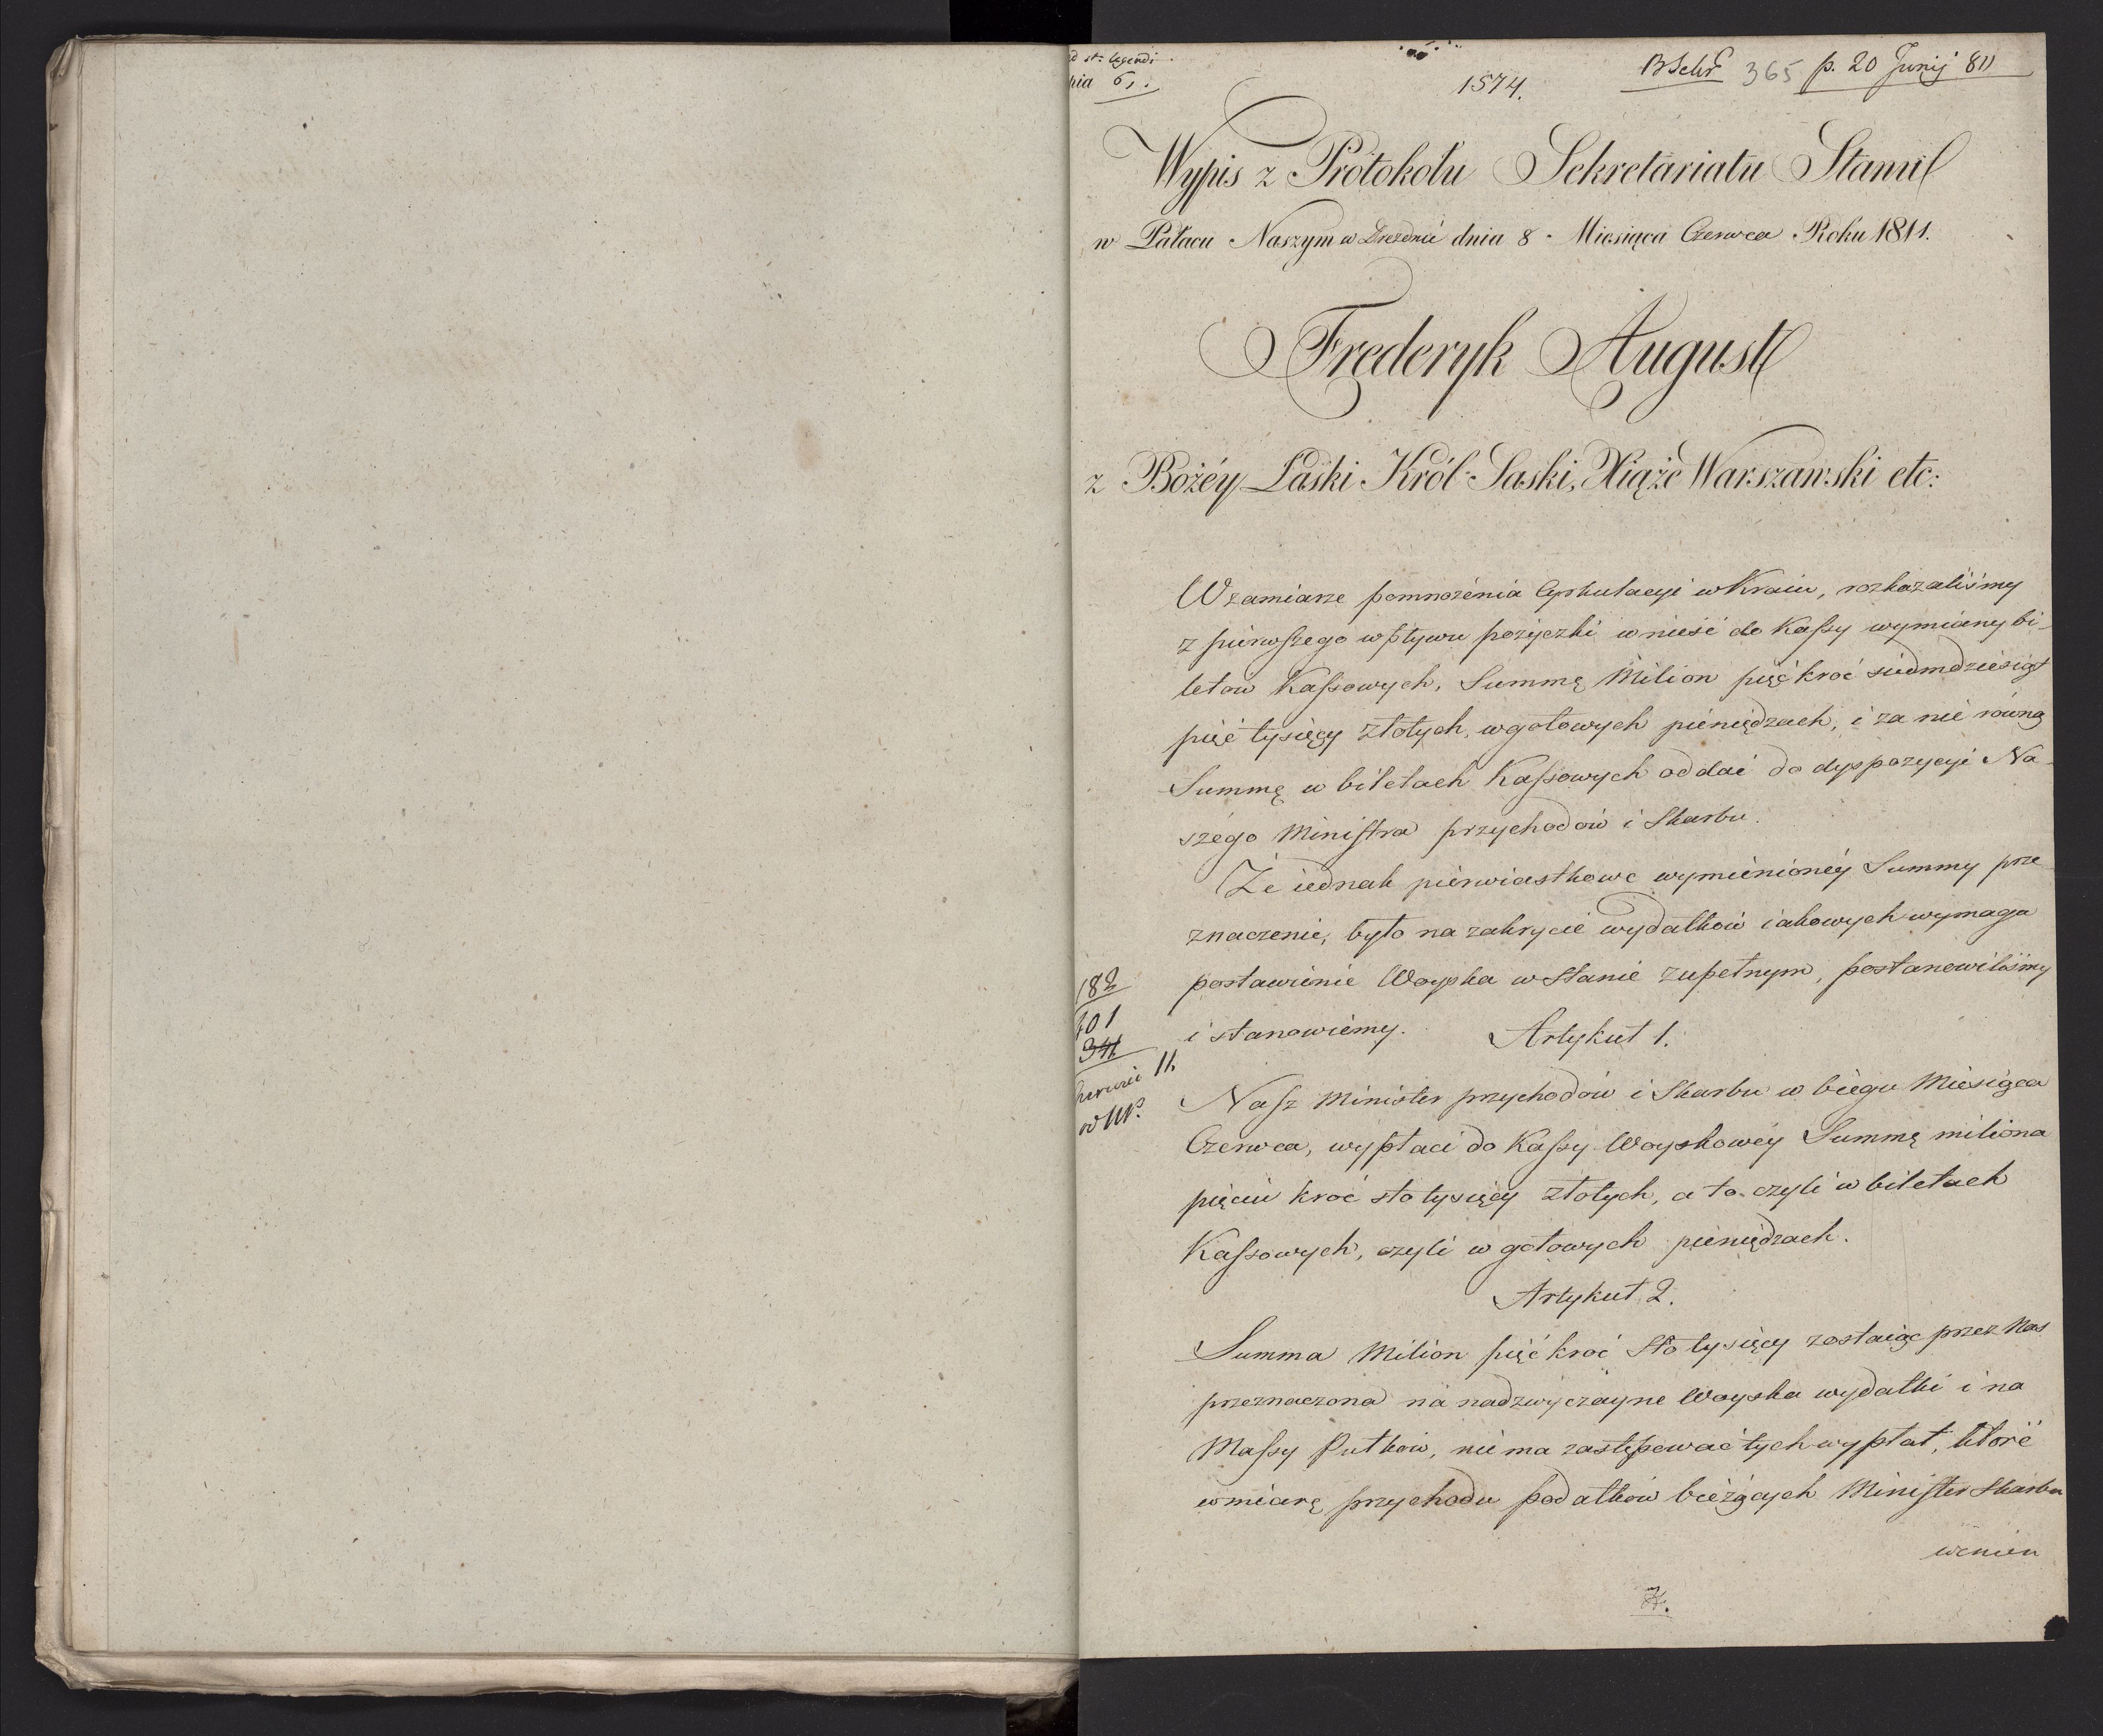 ad st: legendi
nia 6,.
1574.
BSchr 365 p. 20 Junij 811
Wypis z Protokołu Sekretariatu Stanu
w Pałacu Naszym w Dreznie dnia 8 Miesiąca Czerwca Roku 1811.
Frederyk August
z Bożéy Łaski Król Saski, Xiąże Warszawski etc:
W zamiarze pomnożenia Cyrkulacyi w Kraiu, rozkazaliśmy
z pierwszego wpływu pożyczki wnieść do Kassy wymiany bi-
letow Kassowych, Summę Milion pięćkroć siedmdziesiąt
pięć tysięcy złotych, w gotowych pieniędzach, i za nie równą
Summę w biletach Kassowych oddać do dyspozycyi Na-
szego Ministra przychodów i Skarbu.
Że iednak pierwiastkowe wymienionéy Summy prze
znaczenie, było na zakrycie wydatków iakowych wymaga
postawienie Woyska w Stanie zupełnym, postanowiliśmy
i stanowiemy. Artykuł 1.
182
101
341
11.
Nasz Minister przychodów i Skarbu w biegu Miesiąca
Czerwca, wypłaci do Kassy Woyskowéy Summę miliona
pięciu kroć sto tysięcy złotych, a to czyli w biletach
Kassowych, czyli w gotowych pieniędzach.
Artykuł 2.
Summa Milion pięćkroć Sto tysięcy zostaiąc przez Nas
przeznaczona na nadzwyczayne Woyska wydatki i na
Massy Pułków, nie ma zastępować tych wypłat, które
w miarę przychodu podatków bieżących Minister Skarbu
winien